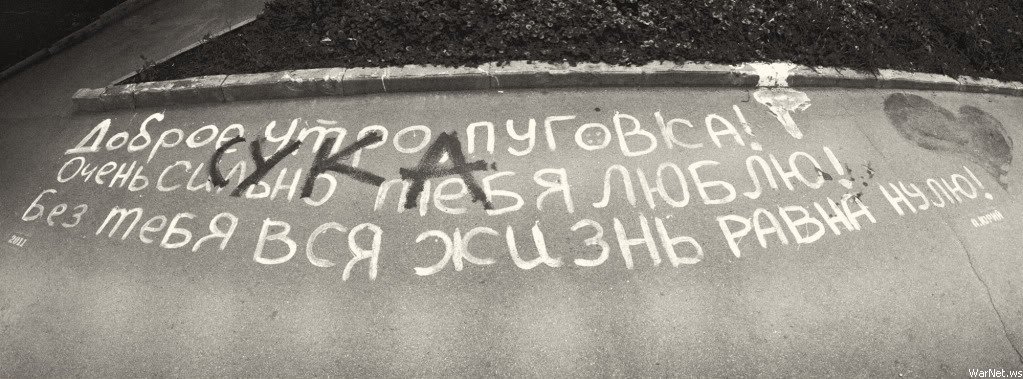 Доброе утро пуговка!
Очень сильно тебя люблю!
Без тебя вся жизнь равна нулю!
СУКА
2011
WarNet.ws